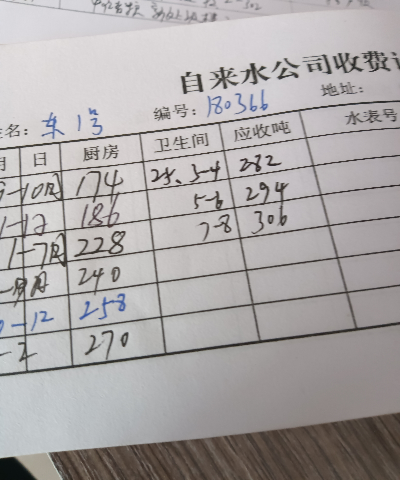 自来水公司收费
名: 东1号 编号: 180366 地址:
月 日 厨房 卫生间 应收吨 水表号
9-10月 174 25、3-4 282
1-12 186 5-6 294
1-7月 228 7-8 306
240
-12 258
-2 270